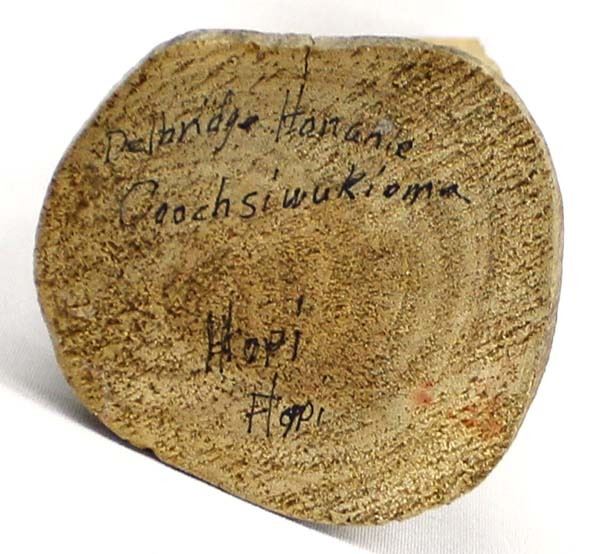 Delbridge Honanie
Coochsiwukioma
Hopi
Hopi